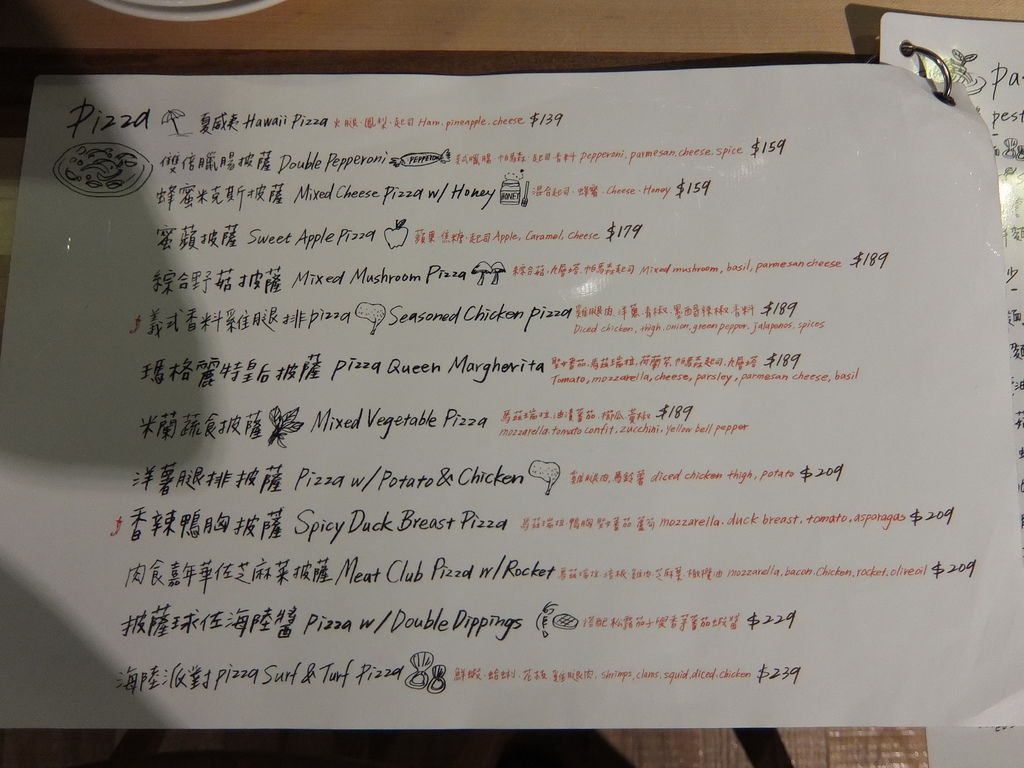 Pizza 夏威夷 Hawaii Pizza 火腿.鳳梨.起司 Ham, pineapple, cheese $139
雙倍臘腸披薩 Double Pepperoni PEPPERONI 美式臘腸.帕瑪森.起司.香料 pepperoni, parmesan, cheese, spice $159
蜂蜜米克斯披薩 Mixed Cheese Pizza w/ Honey HONEY 混合起司.蜂蜜. Cheese. Honey $159
蜜蘋披薩 Sweet Apple Pizza 蘋果.焦糖.起司 Apple, Caramel, Cheese $179
綜合野菇披薩 Mixed Mushroom Pizza 綜合菇.九層塔.帕馬森起司 Mixed mushroom, basil, parmesan cheese $189
義式香料雞腿排pizza Seasoned Chicken pizza 雞腿肉.洋蔥.青椒.墨西哥辣椒.香料 $189
Diced chicken, thigh, onion, green pepper, jalapenos, spices
瑪格麗特皇后披薩 pizza Queen Margherita 聖女番茄.馬茲瑞拉.荷蘭芹.帕馬森起司.九層塔 $189
Tomato, mozzarella, cheese, parsley, parmesan cheese, basil
米蘭蔬食披薩 Mixed Vegetable Pizza 馬茲瑞拉.油漬蕃茄.櫛瓜.黃椒 $189
mozzarella, tomato confit, zucchini, yellow bell pepper
洋薯腿排披薩 Pizza w/Potato & Chicken 雞腿肉.馬鈴薯 diced chicken thigh, potato $209
香辣鴨胸披薩 Spicy Duck Breast Pizza 馬茲瑞拉.鴨胸.聖女蕃茄.蘆筍 mozzarella. duck breast, tomato, asparagus $209
肉食嘉年華佐芝麻葉披薩 Meat Club Pizza w/Rocket 馬茲瑞拉.培根.雞肉.芝麻葉.橄欖油 mozzarella, bacon, Chicken, rocket, olive oil $209
披薩球佐海陸醬 pizza w/Double Dippings 搭配松露茄子 蕃茄蝦醬 $229
海陸派對pizza Surf & Turf Pizza 鮮蝦.蛤蜊.花枝.雞腿肉. shrimps, clams, squid, diced, chicken $239